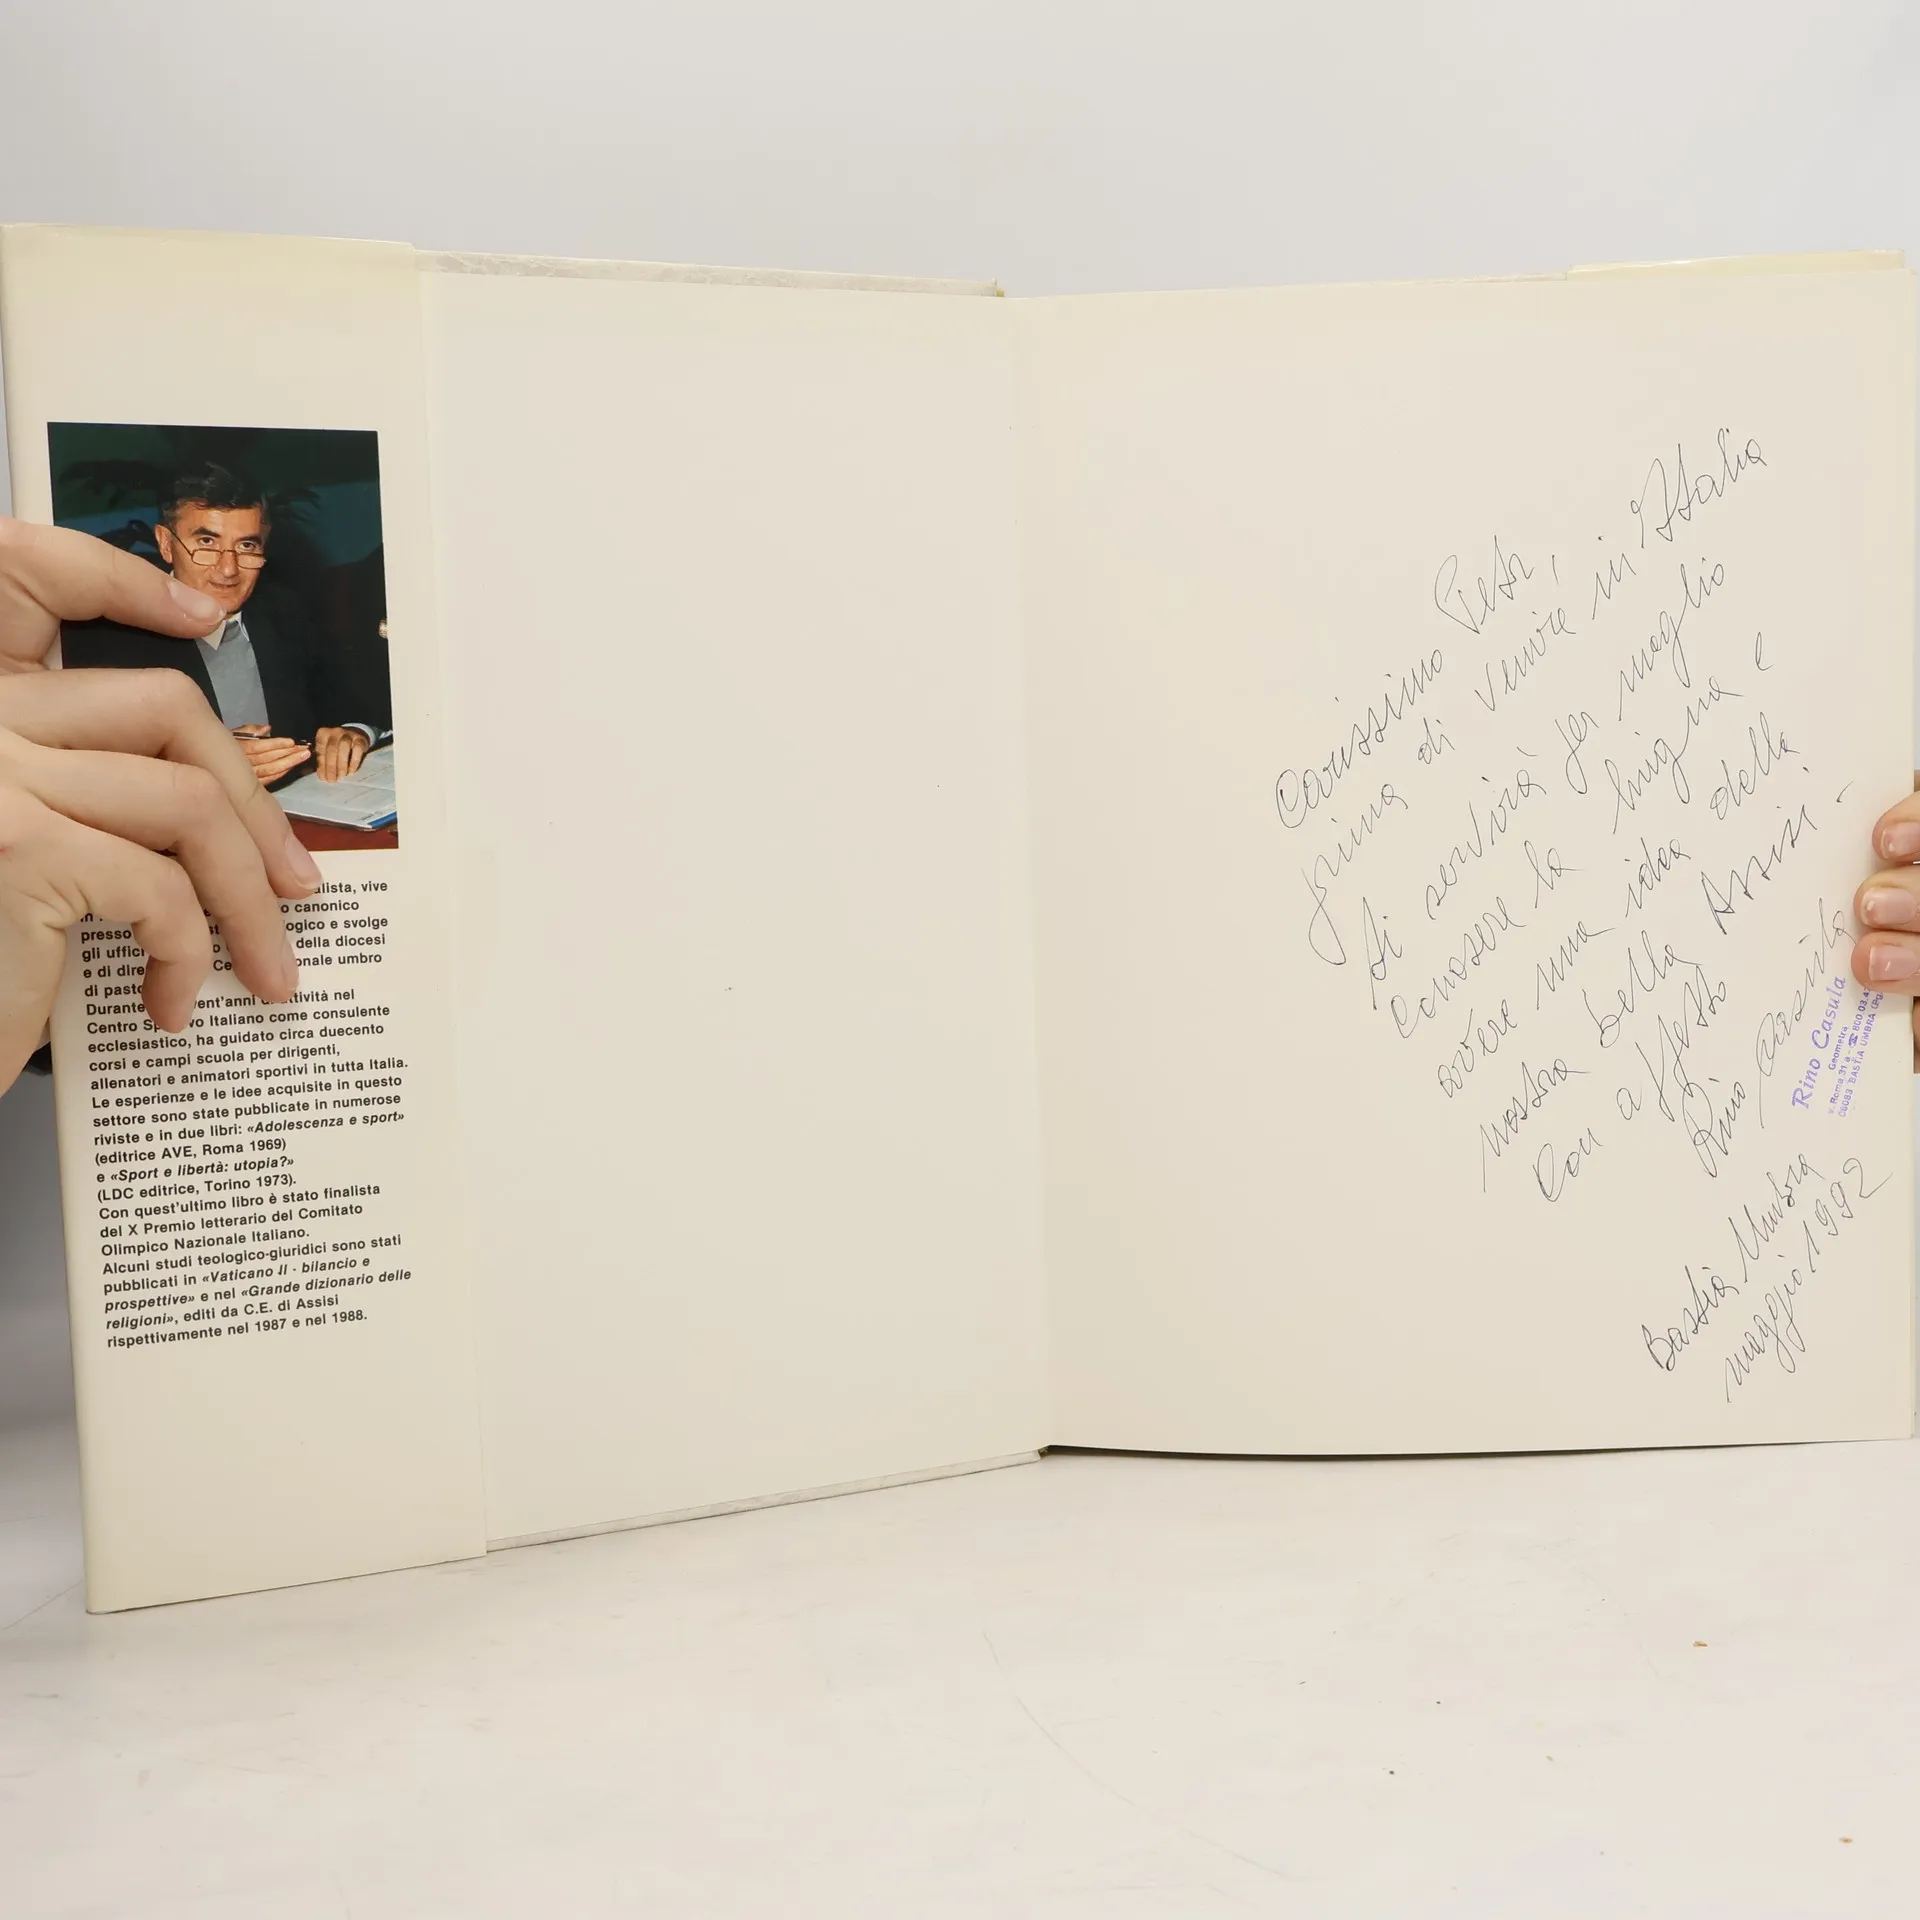 alista, vive
in
o canonico
presso
ogico e svolge
gli uffici
della diocesi
e di dire
Ce
onale umbro
di pasto
Durante
vent'anni
attività nel
Centro Sp
vo Italiano come consulente
ecclesiastico, ha guidato circa duecento
corsi e campi scuola per dirigenti,
allenatori e animatori sportivi in tutta Italia.
Le esperienze e le idee acquisite in questo
settore sono state pubblicate in numerose
riviste e in due libri: «Adolescenza e sport»
(editrice AVE, Roma 1969)
e «Sport e libertà: utopia?»
(LDC editrice, Torino 1973).
Con quest'ultimo libro è stato finalista
del X Premio letterario del Comitato
Olimpico Nazionale Italiano.
Alcuni studi teologico-giuridici sono stati
pubblicati in «Vaticano II - bilancio e
prospettive» e nel «Grande dizionario delle
religioni», editi da C.E. di Assisi
rispettivamente nel 1987 e nel 1988.
Carissimo Petr,
prima di venire in Italia
ti servirà per meglio
conoscere la lingua e
avere una idea della
nostra bella Assisi -
Con affetto
Rino Casula
Rino Casula
Geometra
v. Roma, 31
06083 BASTIA UMBRA (Pg
Bastia Umbra
maggio 1992